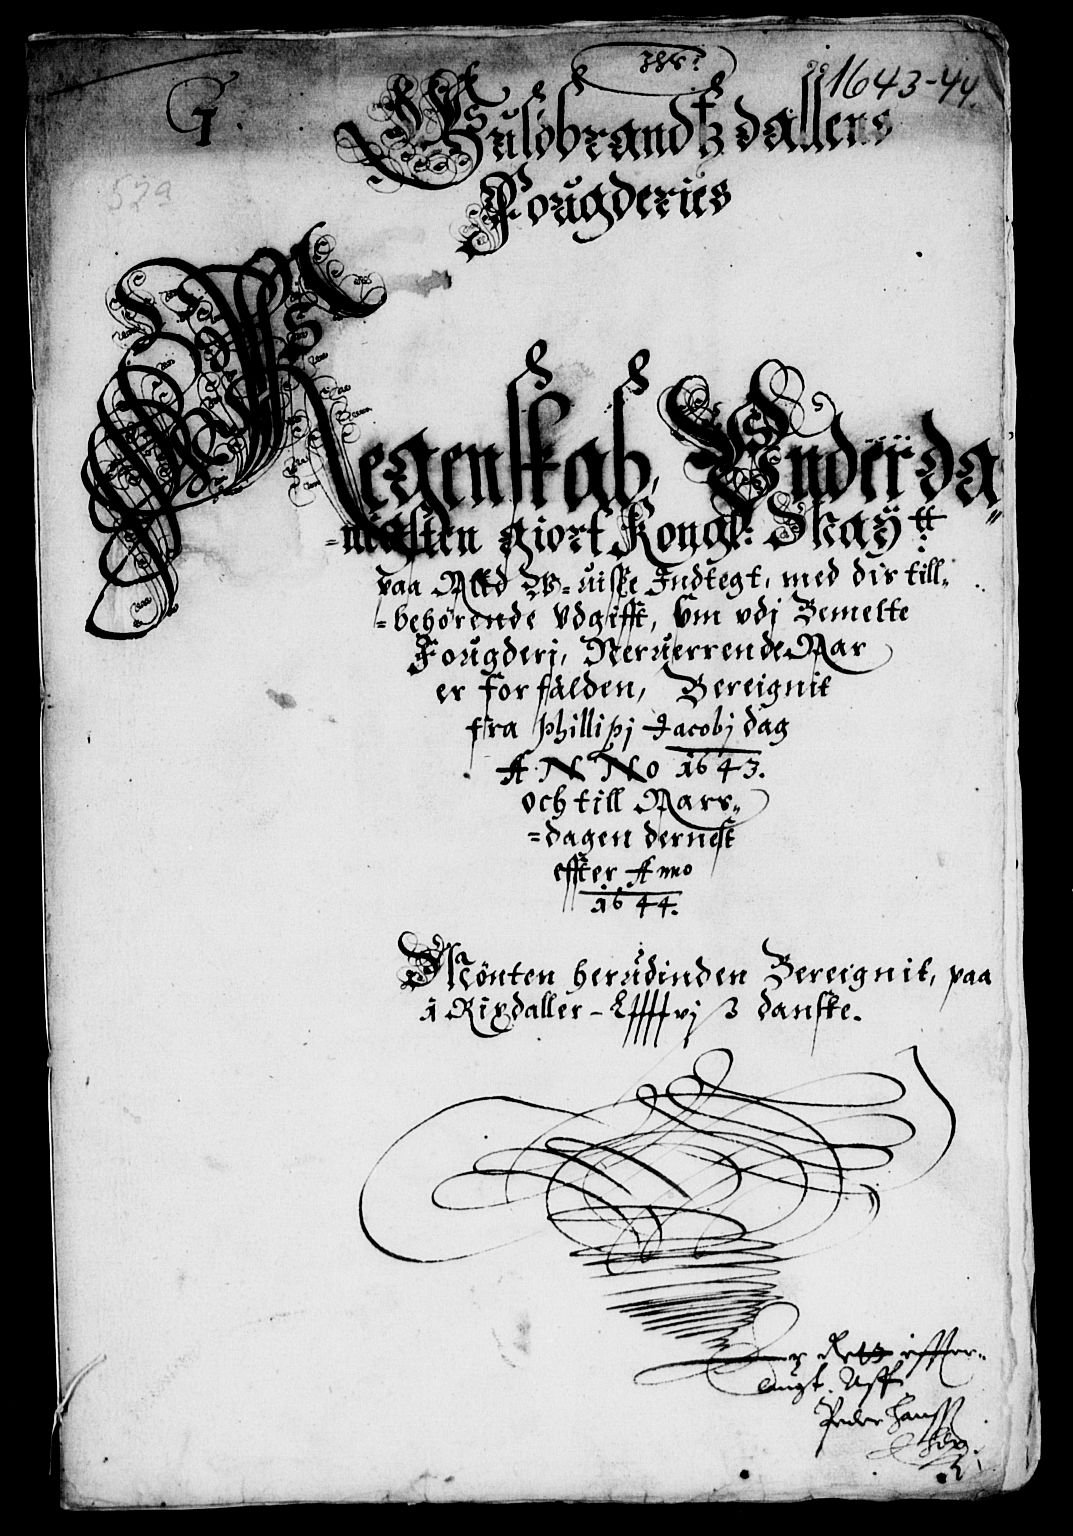 1643-44.
G
529
Guldbrandtzdallens
Fougderies
Regenskab, Underda„
„nigsten giort Kongl: Mayᵗᵗ:
paa All W-uiſſe Indtegt, med dis till„
„behørende Vdgifft, ſom vdj Bemelte
Fougderj, Neruerrende Aar
er forfalden, Bereignit
fra Phillipj Jacobj dag
ANNO 1643.
och till Aars„
„dagen derneſt
effter Anno
1644.
Mønten herudinden Bereignit, paa
1 Rixdaller - danſke.
effter„
Peder